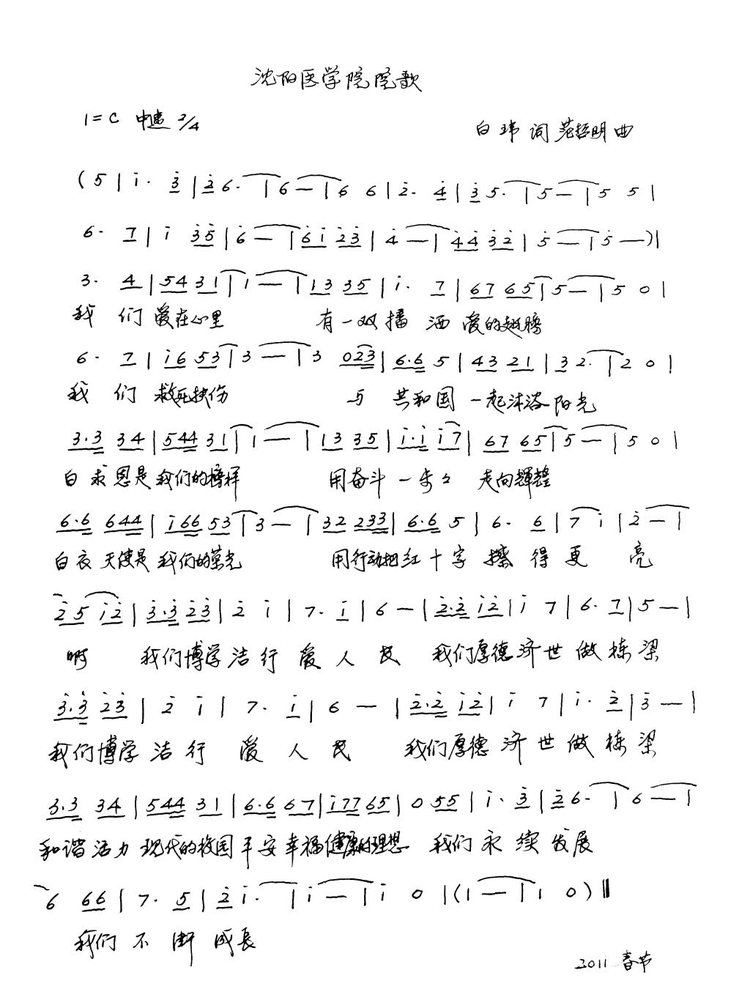 沈阳医学院院歌
1=C 中速 2/4
白玮词 范哲明曲
(5|i· 3|26·|6—|6 6|2· 4|35·|5—|5 5|
6· 7|i 35|6—|6i 23|4—|44 32|5—|5—)|
3· 4|54 31|1—|13 35|i· 7|67 65|5—|5 0|
我们爱在心里 有一双播洒爱的翅膀
6· 7|i6 53|3—|3 023|6·6 5|43 21|32·|2 0|
我们救死扶伤 与共和国一起沐浴阳光
3·3 34|544 31|1—|13 35|i·i i7|67 65|5—|5 0|
白求恩是我们的榜样 用奋斗一步々走向辉煌
6·6 644|i66 53|3—|32 233|6·6 5|6· 6|7 i|2—|
白衣天使是我们的荣光 用行动把红十字擦得更亮
25 i2|3·3 23|2 i|7· i|6—|2·2 i2|i 7|6· 7|5—|
啊 我们博学洁行爱人民 我们厚德济世做栋梁
3·3 23|2 i|7· i|6 —|2·2 i2|i 7|i· 2|3—|
我们博学洁行爱人民 我们厚德济世做栋梁
3·3 34|544 31|6·6 67|i77 65|0 55|i· 3|26·|6—|
和谐活力现代的校园平安幸福健康的理想 我们永续发展
6 66|7· 5|2i·|i—|i 0|(1—|1 0)‖
我们不断成长
2011 春节